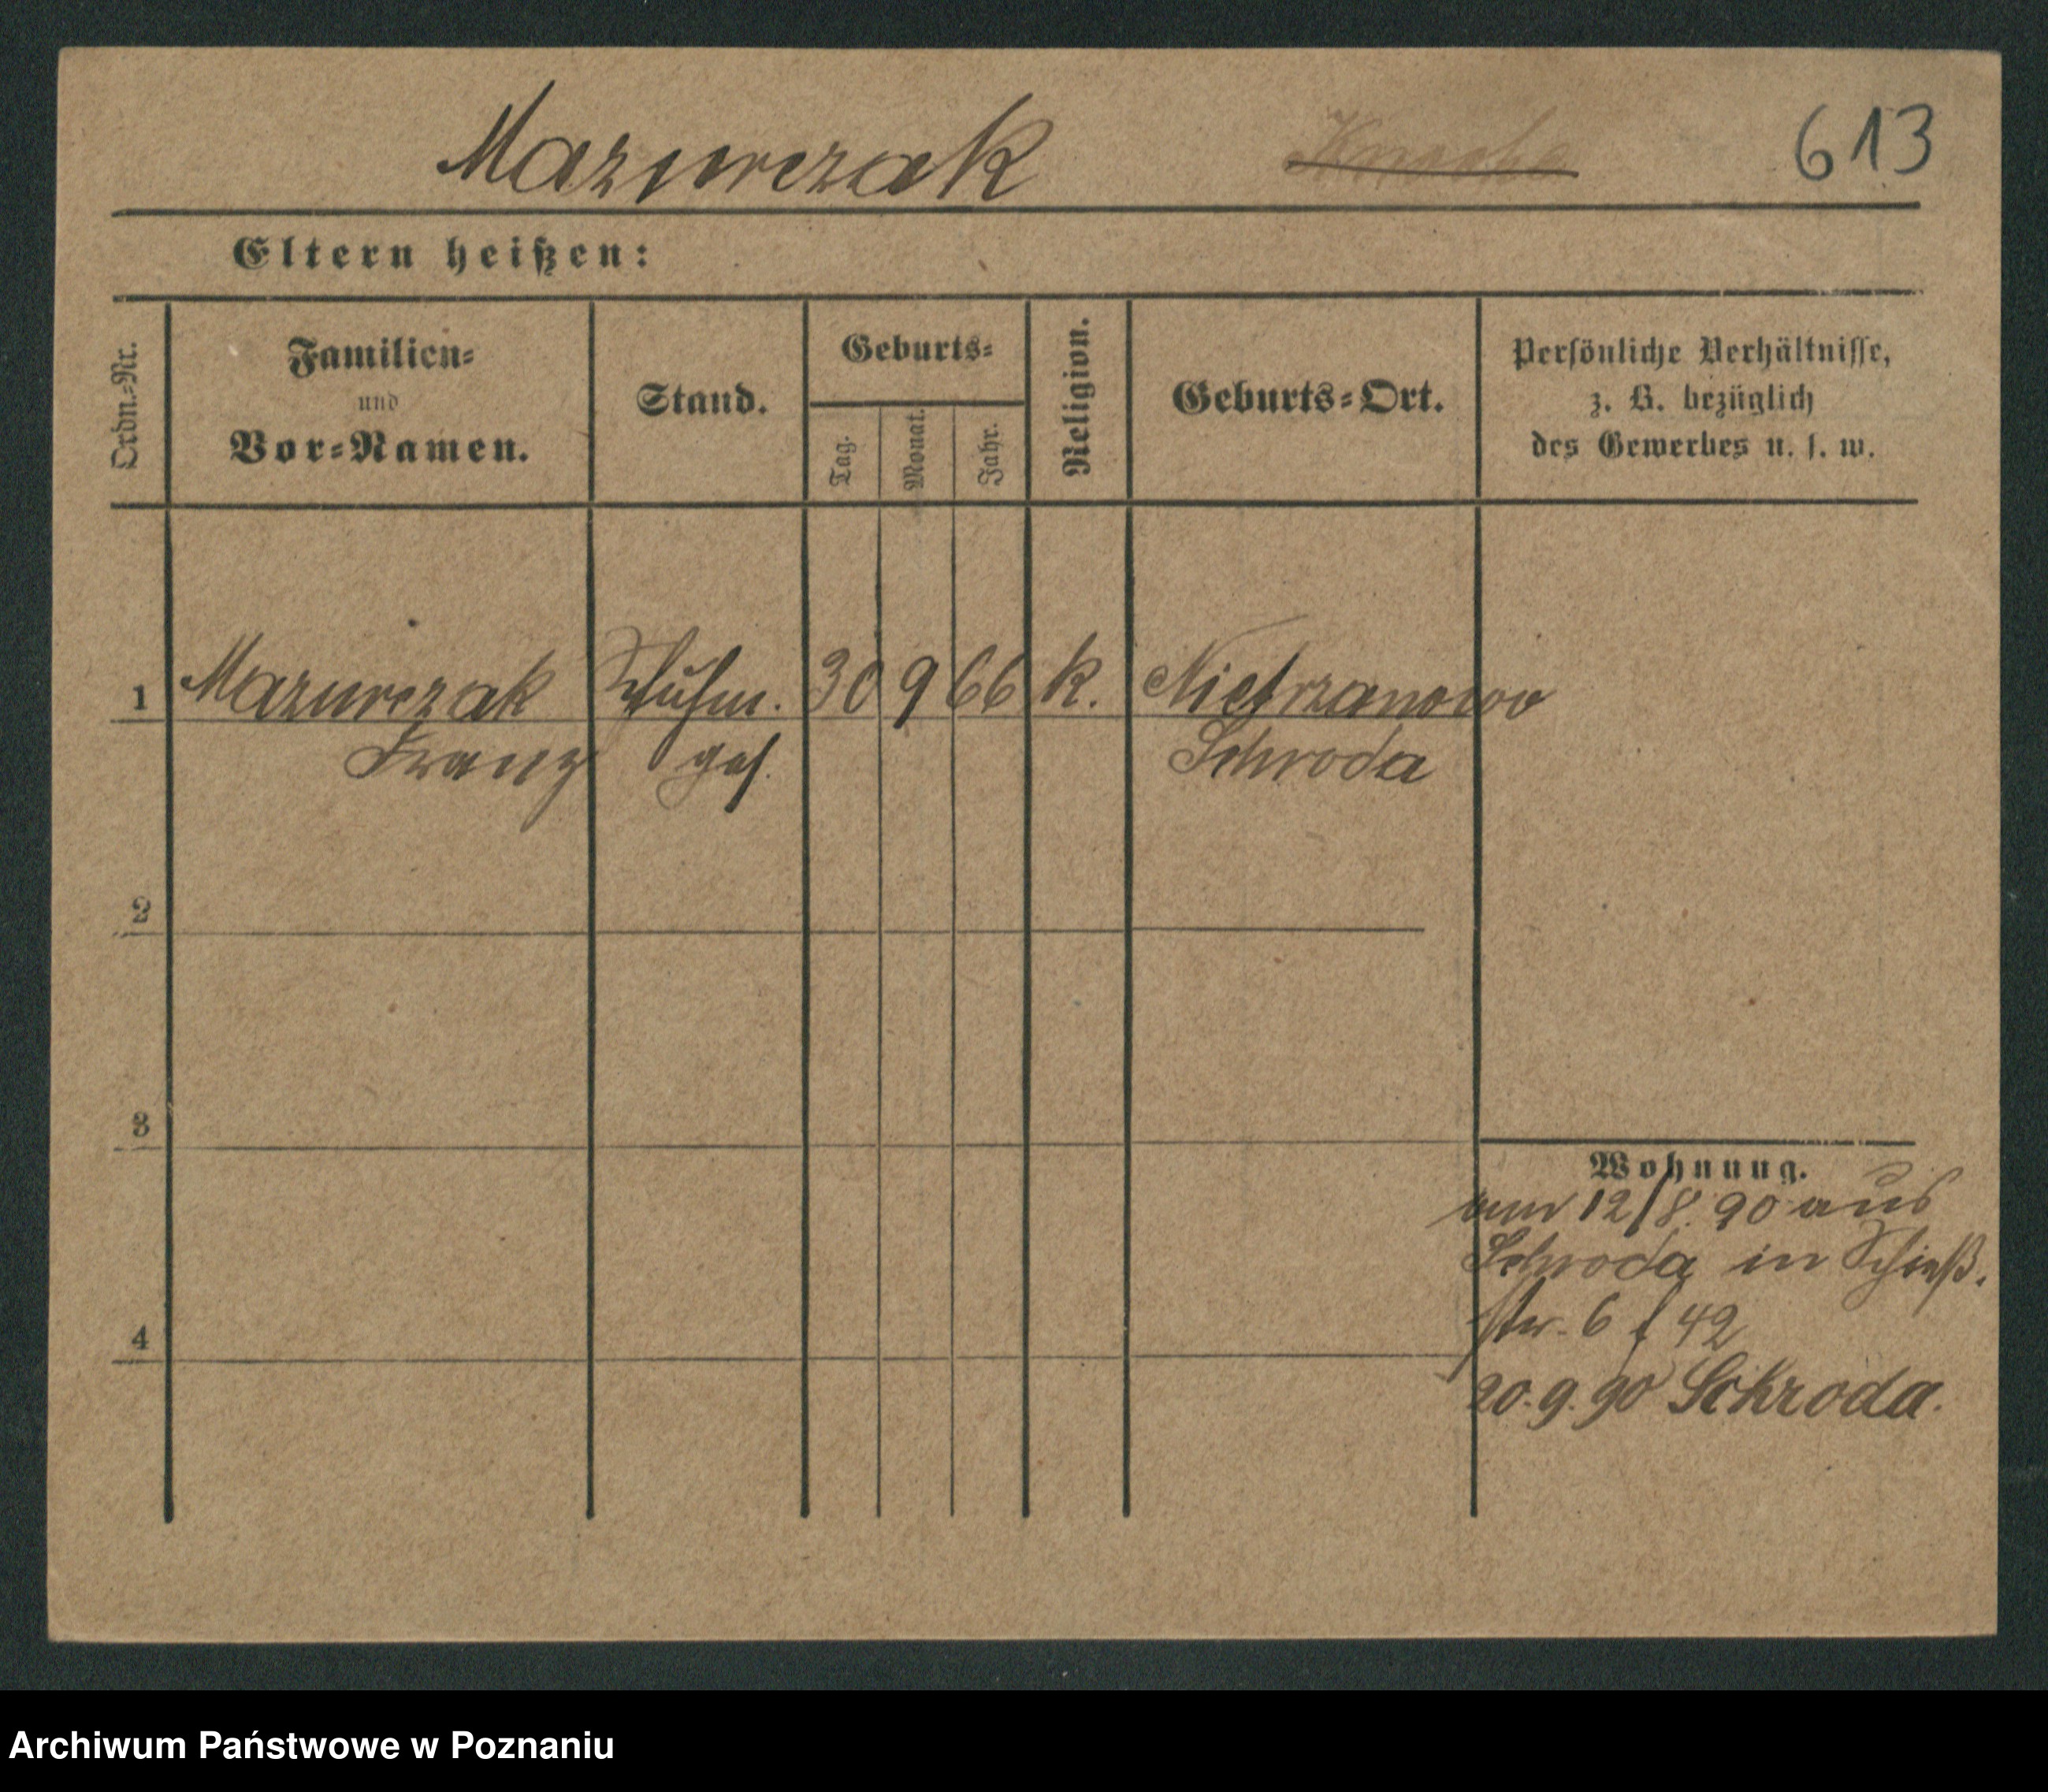 Mazurczak 613
Eltern heißen:
Ordn.-Nr.
Familien-
und
Vor-Namen.
Stand.
Geburts-
Tag.
Monat.
Jahr.
Religion.
Geburts-Ort.
Persönliche Verhältnisse,
z. B. bezüglich
des Gewerbes u. s. w.
1 Mazurczak Schuhm. 30 9 66 k. Nietrzanowo
Franz ges. Schroda
2
3
Wohnung.
am 12/8. 90 aus
Schroda in Schieß.
4
str. 6 f 42
20.9.90 Schroda.
Archiwum Państwowe w Poznaniu